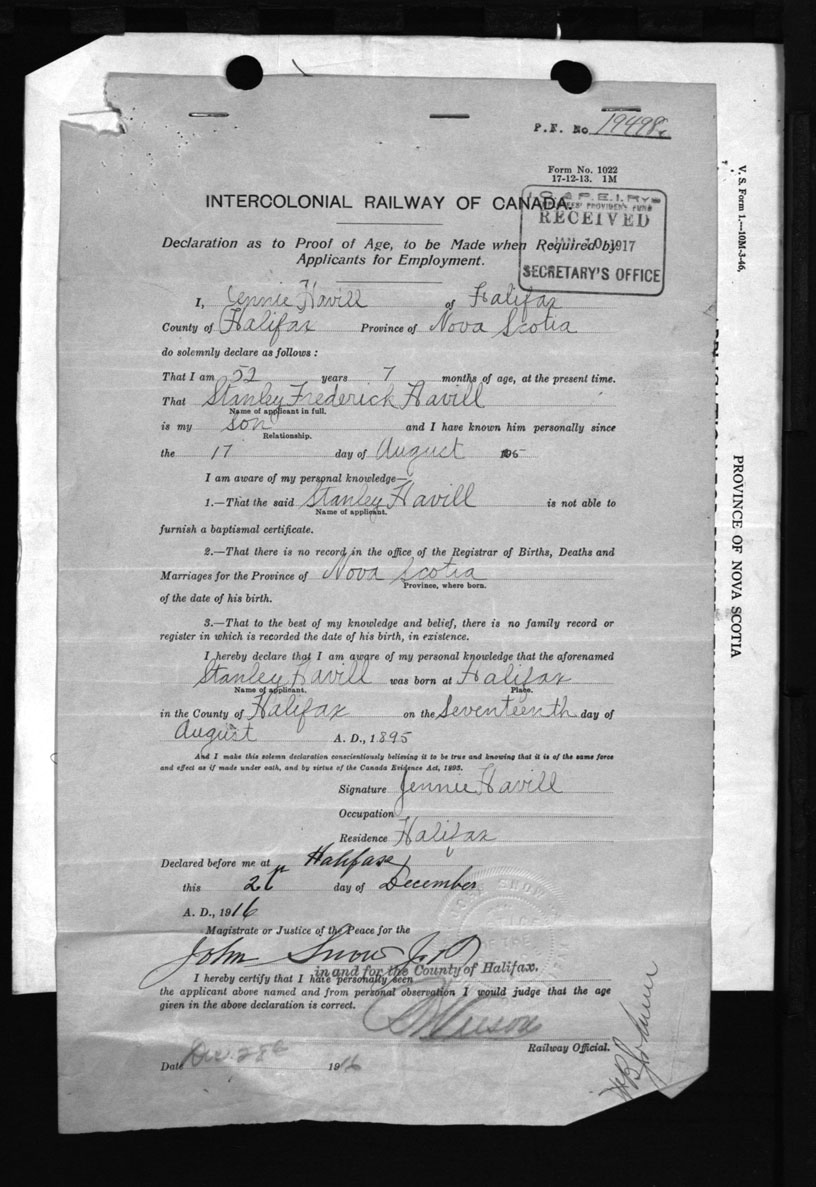 P. F. No 19498
Form No. 1022
17-12-13. 1M
INTERCOLONIAL RAILWAY OF CANADA.
I. C. & P. E. I. RYS
PROVIDENT FUND
RECEIVED
JAN 10 1917
SECRETARY'S OFFICE
Declaration as to Proof of Age, to be Made when Required by
Applicants for Employment.
I, Jennie Havill of Halifax
County of Halifax Province of Nova Scotia
do solemnly declare as follows :
That I am 52 years 7 months of age, at the present time.
That Stanley Frederick Havill
Name of applicant in full.
is my son and I have known him personally since
Relationship.
the 17 day of August
I am aware of my personal knowledge—
1.—That the said Stanley Havill is not able to
Name of applicant.
furnish a baptismal certificate.
2.—That there is no record in the office of the Registrar of Births, Deaths and
Marriages for the Province of Nova Scotia
Province, where born.
of the date of his birth.
3.—That to the best of my knowledge and belief, there is no family record or
register in which is recorded the date of his birth, in existence.
I hereby declare that I am aware of my personal knowledge that the aforenamed
Stanley Havill was born at Halifax
Name of applicant. Place.
in the County of Halifax on the Seventeenth day of
August A. D., 1895
And I make this solemn declaration conscientiously believing it to be true and knowing that it is of the same force
and effect as if made under oath, and by virtue of the Canada Evidence Act, 1893.
Signature Jennie Havill
Occupation
Residence Halifax
Declared before me at Halifax
this day of December
A. D., 1916
Magistrate or Justice of the Peace for the
John Snow J.P.
in and for the County of Halifax.
I hereby certify that I have personally seen
the applicant above named and from personal observation I would judge that the age
given in the above declaration is correct.
Railway Official.
Date Dec. 28 1916
V. S. Form 1.—10M-3-46.
PROVINCE OF NOVA SCOTIA